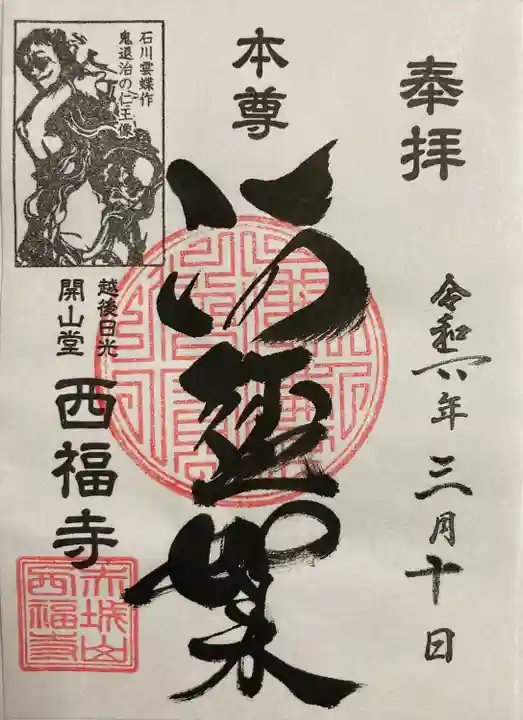 奉拝
令和六年 三月十日
本尊
阿弥陀如来
石川雲蝶作
鬼退治の仁王像
越後日光
開山堂
西福寺
赤城山
西福寺